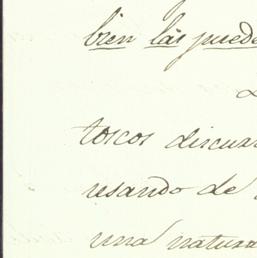 bien las puede
toscos discur
resando de
una natura